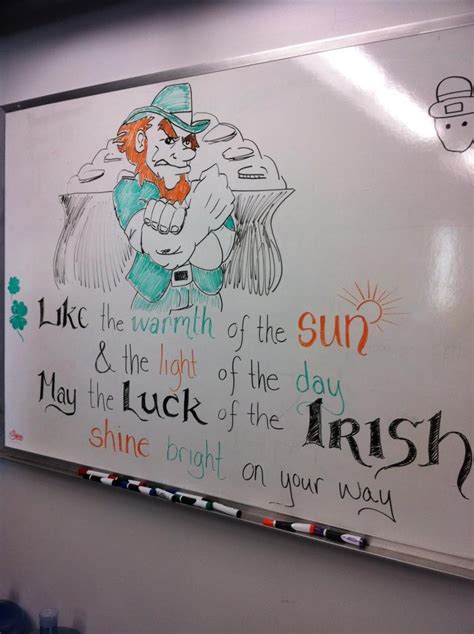 Like the warmth of the sun
& the light of the day
May the Luck of the Irish
shine bright on your way